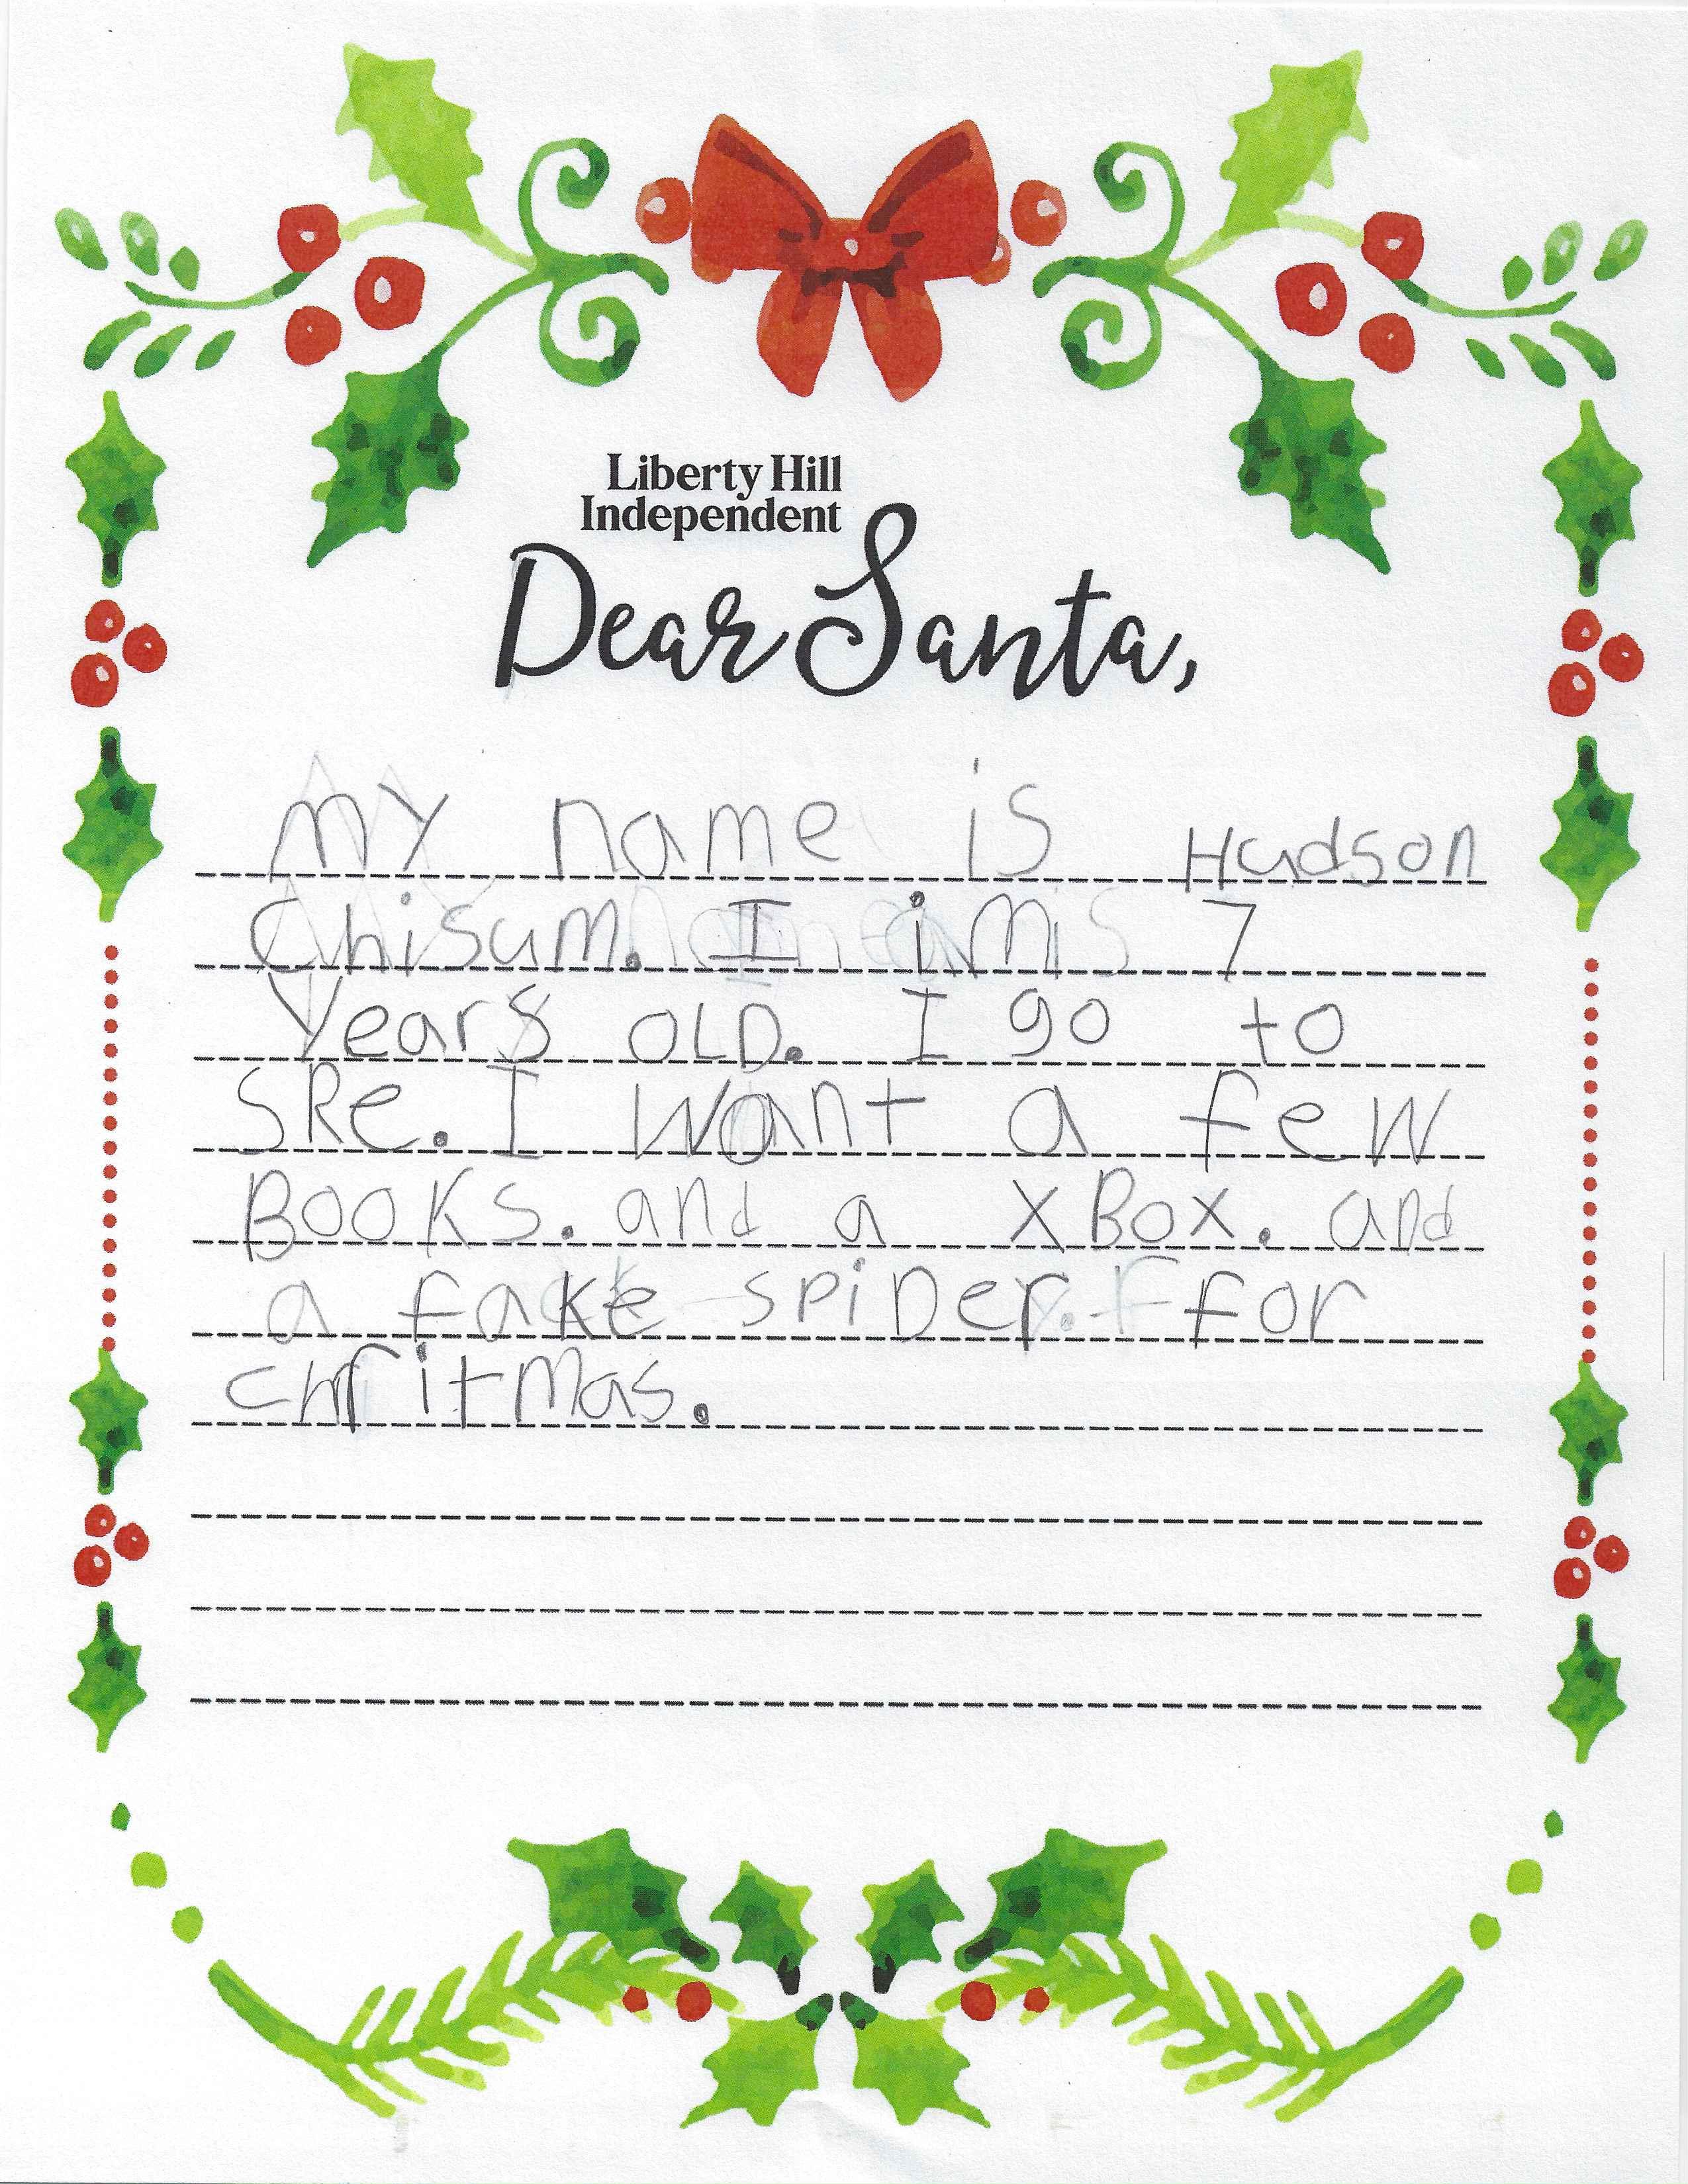 Liberty Hill
Independent
Dear Santa,
my name is Hudson
Chisum. I im 7
years oLD. I go to
SRe. I want a few
Books. and a xBox. and
a fake spiDer. for
christmas.